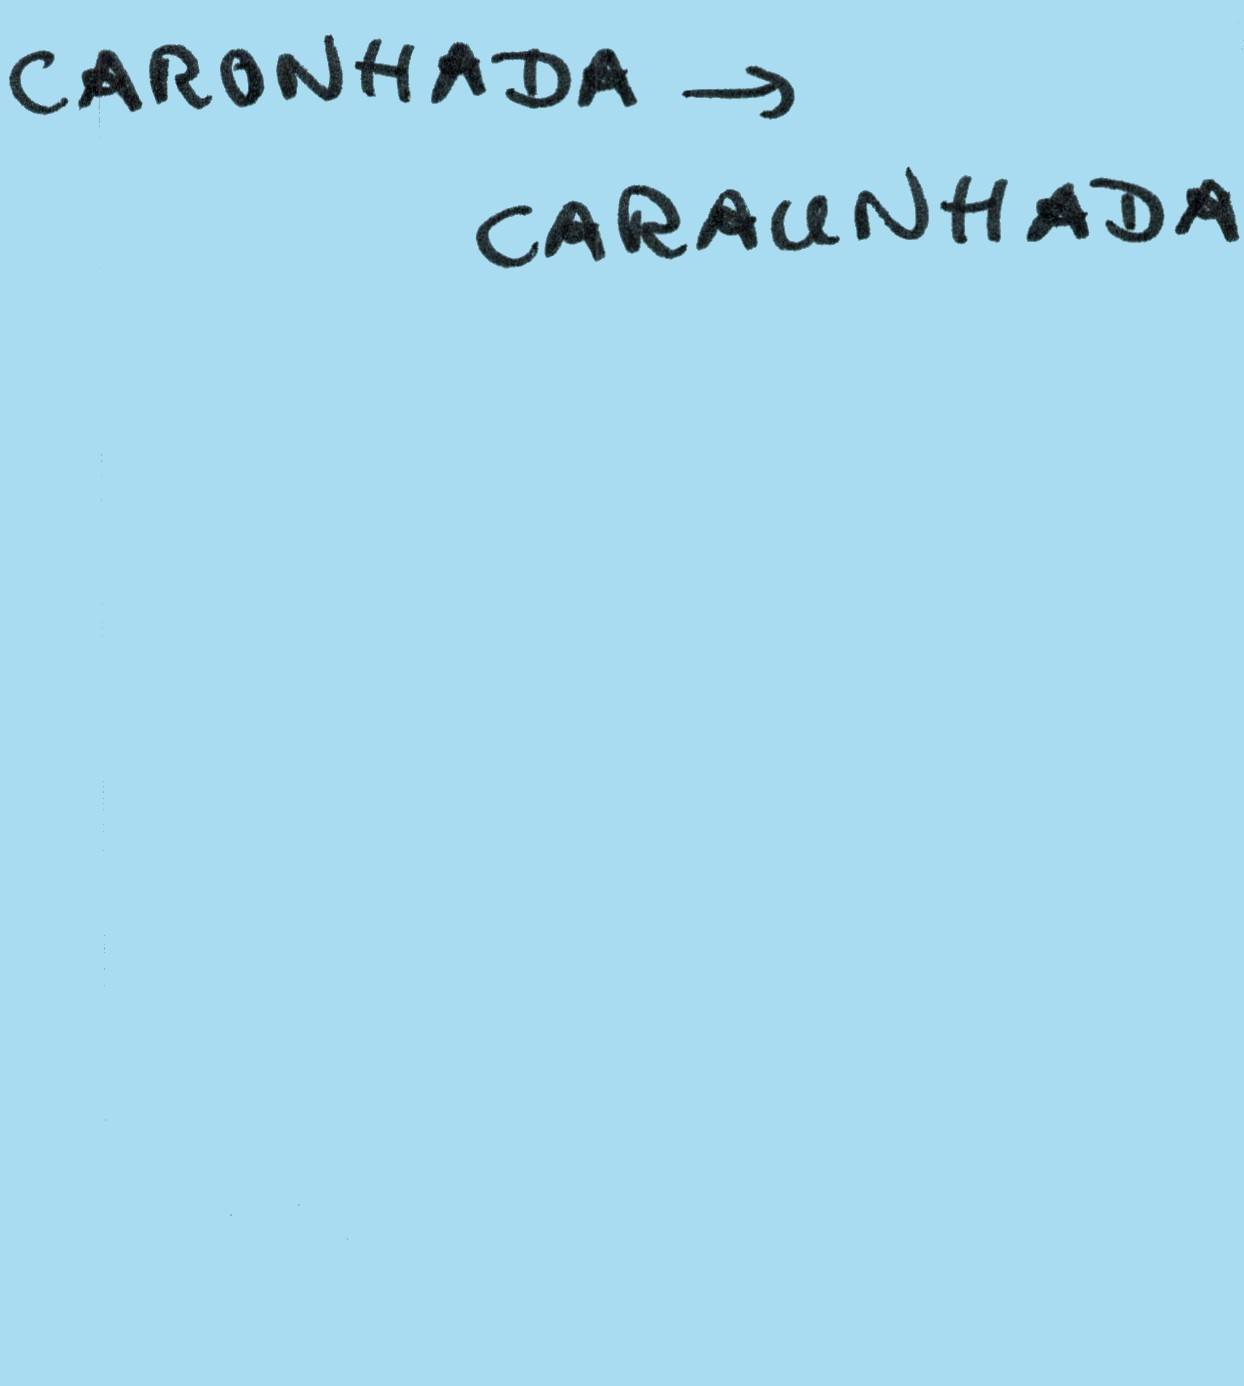 CARONHADA →
CARAUNHADA